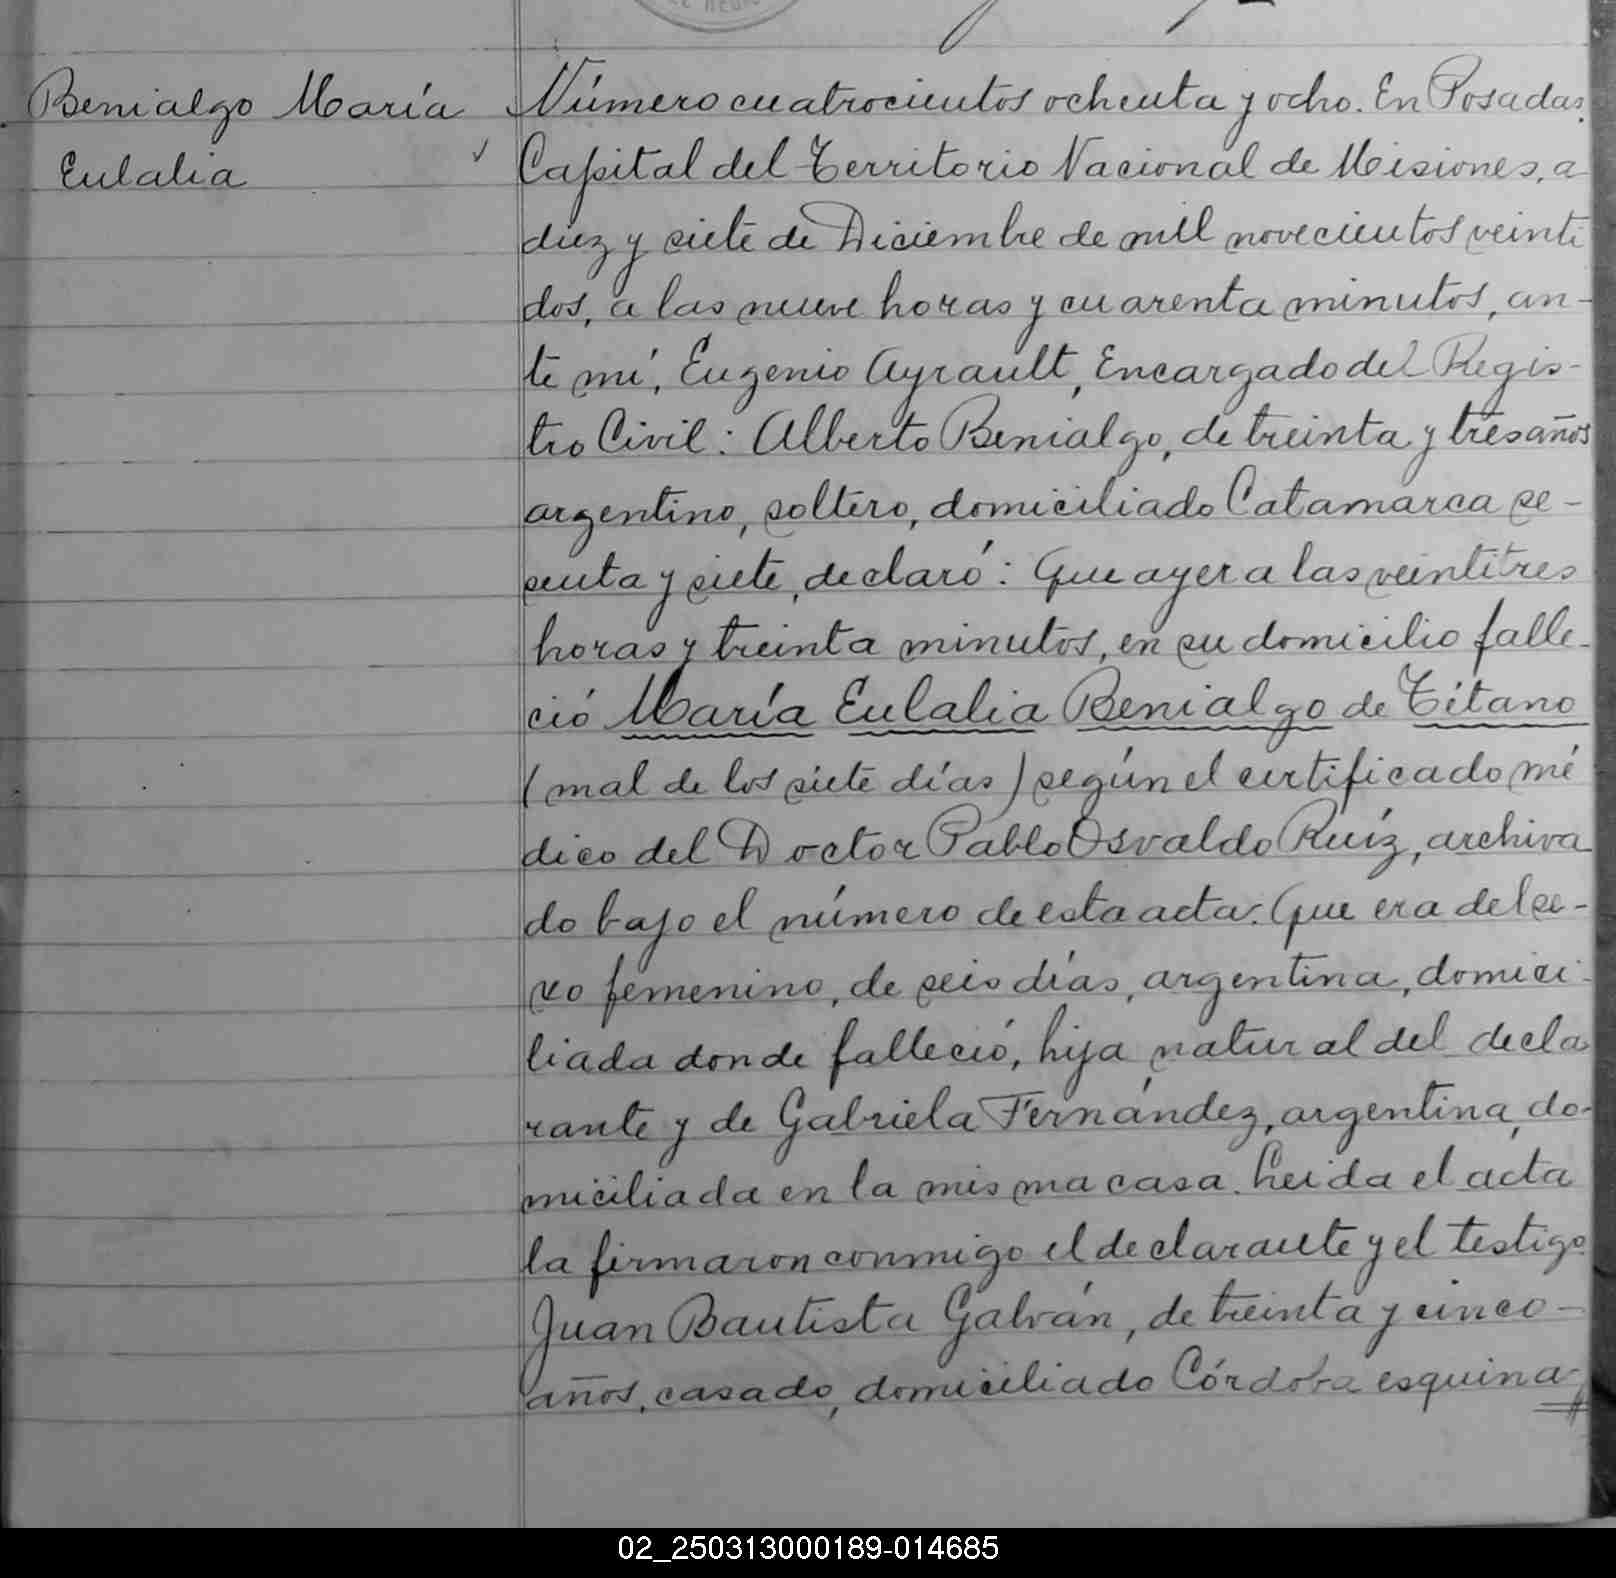 Benialgo María
Eulalia
Número cuatrocientos ochenta y ocho. En Posadas,
Capital del Territorio Nacional de Misiones, a
diez y siete de Diciembre de mil novecientos veinti
dos, a las nueve horas y cuarenta minutos, an-
te mí, Eugenio Ayrault, Encargado del Regis-
tro Civil: Alberto Benialgo, de treinta y tres años
argentino, soltero, domiciliado Catamarca se-
senta y siete, declaró: Que ayer a las veintitres
horas y treinta minutos, en su domicilio falle-
ció María Eulalia Benialgo de Tétano
(mal de los siete días) según el certificado mé
dico del Doctor Pablo Osvaldo Ruíz, archiva
do bajo el número de esta acta. Que era del se-
xo femenino, de seis días, argentina, domici-
liada donde falleció, hija natural del decla
rante y de Gabriela Fernández, argentina, do-
miciliada en la misma casa. Leida el acta
la firmaron conmigo el declarante y el testigo
Juan Bautista Galván, de treinta y cinco-
años, casado, domiciliado Córdoba esquina
02_250313000189-014685